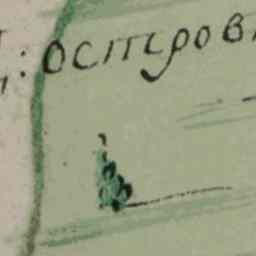 : островъ